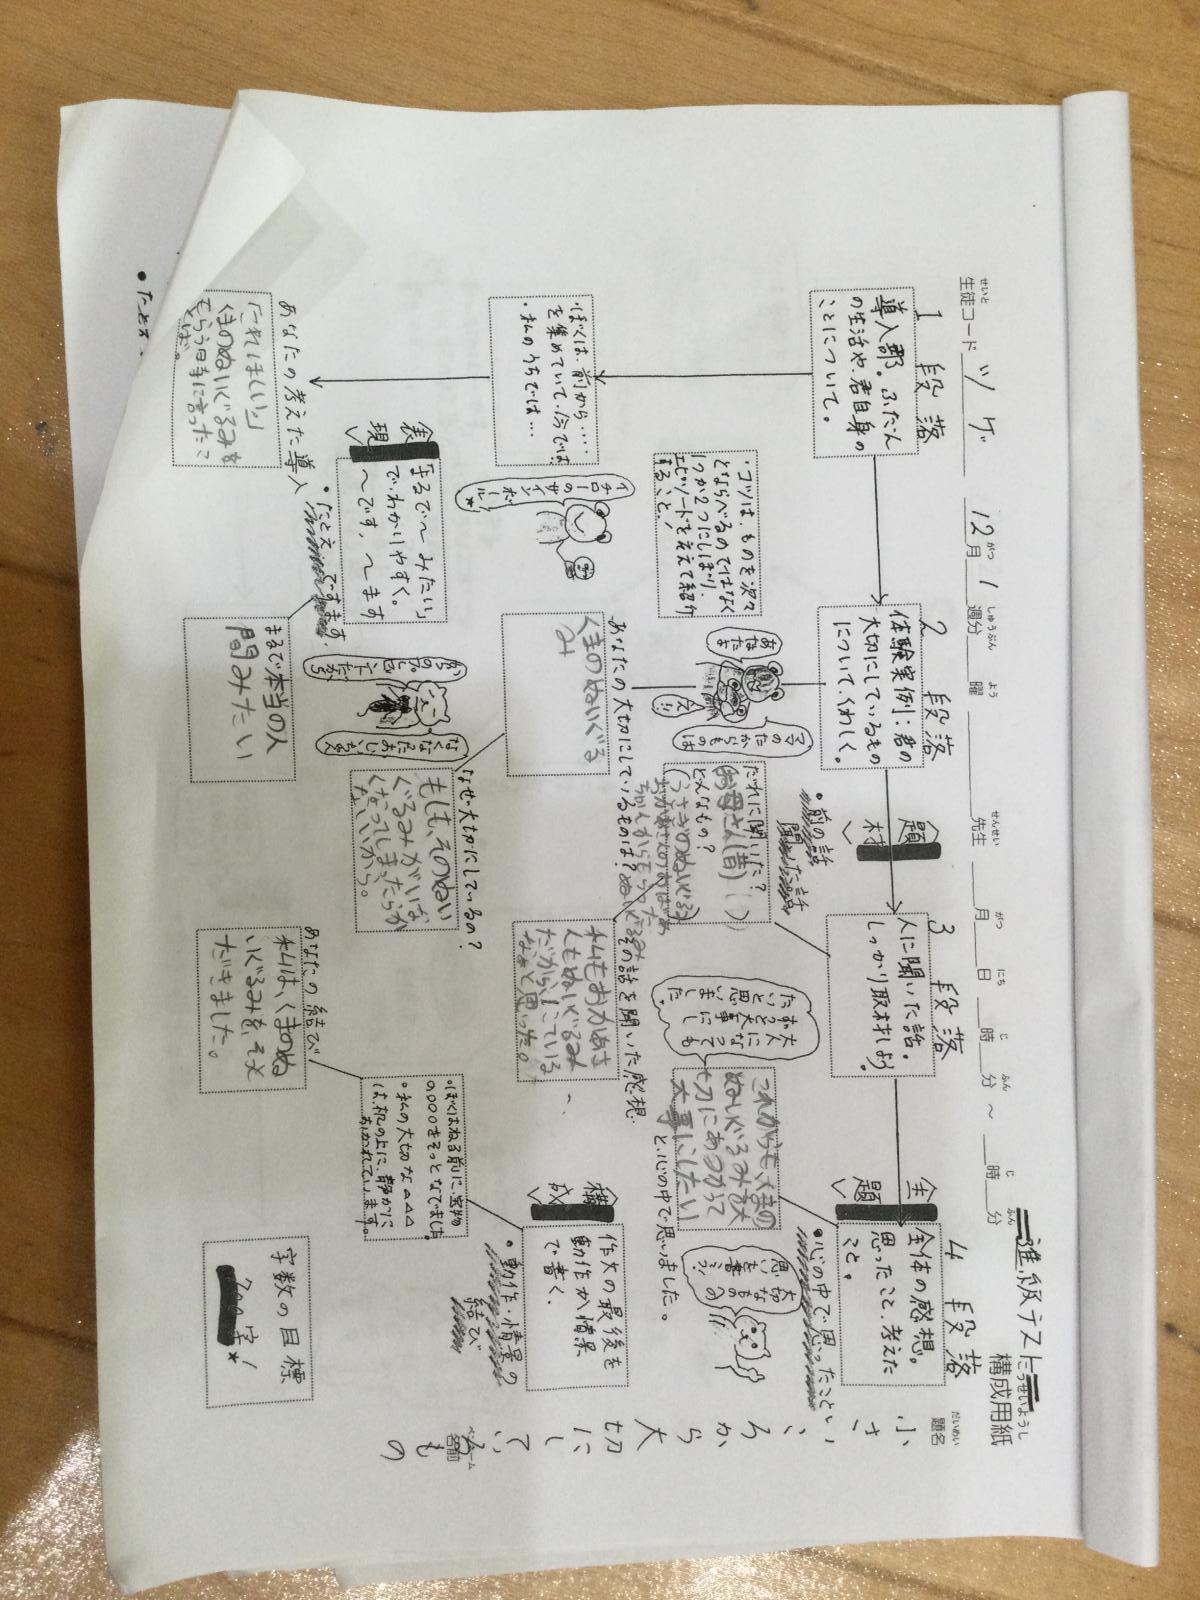 進級テスト
構成用紙
こうせいようし
題名
だいめい
小さいころから大切にしているもの
名前
生徒コード
せいと
ツゲ
12月1週分 曜
がつ しゅうぶん よう
先生
せんせい
月 日 時 分 ～ 時 分
がつ にち じ ふん じ ふん
1段落
導入部。ふだん
の生活や、君自身の
ことについて。
・ぼくは、前から……
を集めていて、今では
・私のうちでは…
あなたの考えた導入
「これほしい」
くまのぬいぐるみを
もらう日寺に言ったこ
とば。
・コツは、ものを次々
とならべるのではなく
1つか2つにしぼり、
エピソードを交えて紹介
すること！
イチローのサインボール*
表現
「まるで～みたい」
で、わかりやすく。
～です、～ます
・たとえ
ですます
まるで本当の人
間みたい
2段落
体験実例：君の
大切にしているもの
について、くわしく。
あなたは
えっ
ママのたからものは
あなたの大切にしているものは？
くまのぬいぐる
み
なぜ大切にしているの？
もしも、そのぬい
ぐるみがいな
くなってしまったらか
ないから。
なくなったおじいちゃん
からのプレゼントだから
題材
3段落
人に聞いた話。
しっかり取材しよう。
・前の話
聞いた話
だれに聞いた？
(お母さん(昔) )
どんなもの？
その話を聞いた感想
私もおかあさ
んもぬいぐるみ
だから、にている
なぁと思った。
大人になっても
ずっと大事にし
たいと思いました。
主題
4段落
全体の感想。
思ったこと、考えた
こと。
・心の中で思ったこと
大切なものへの
思いを書こう
これからも、くまの
ぬいぐるみを大
切にあつかって
大事にしたい
と、心の中で思いました。
構成
作文の最後を
動作か情景
で書く。
・動作・情景の
結び
・ぼくはねる前に、宝物
の○○○をそっとなでました。
・私の大切な△△△
は、机の上に、静かに
おかれています。
あなたの結び
私は、くまのぬ
いぐるみを、そっと
だきました。
字数の目標
700字！*